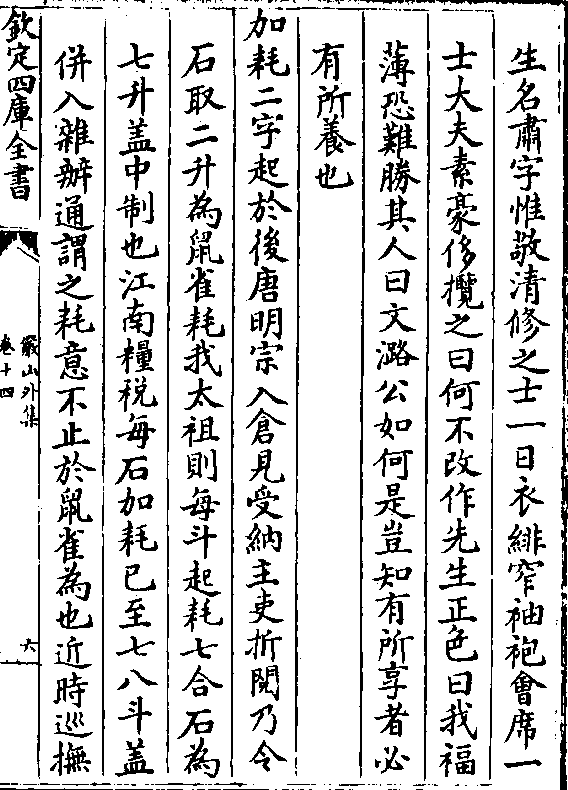 生名肅字惟敬清修之士一日衣緋窄袖袍會席一
士大夫素豪侈攬之曰何不改作先生正色曰我福
薄恐難勝其人曰文潞公如何是豈知有所享者必
有所養也
加耗二字起於後唐明宗入倉見受納主吏折閱乃令
石取二升為鼠雀耗我太祖則每斗起耗七合石為
七升盖中制也江南糧税每石加耗已至七八斗盖
併入雜辦通謂之耗意不止於鼠雀為也近時巡撫
欽定四庫全書
儼山外集
卷十四
六